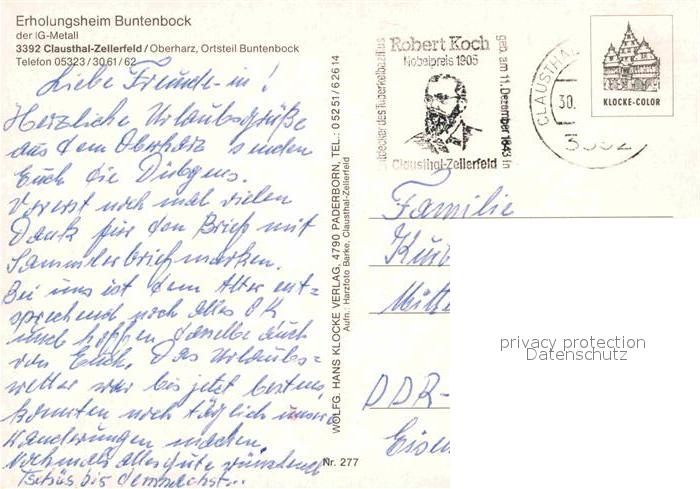 Erholungsheim Buntenbock
der IG-Metall
3392 Clausthal-Zellerfeld / Oberharz, Ortsteil Buntenbock
Telefon 05323 / 30 61 / 62
Liebe Freunde-in!
Herzliche Urlaubsgrüße
aus dem Oberharz senden
Euch die Dübgens.
Vorerst noch mal vielen
Dank für den Brief mit
Sammlerbriefmarken.
Bei uns ist dem Alter ent=
sprechend noch alles OK
und hoffen dasselbe auch
von Euch. Das Urlaubs=
wetter war bis jetzt bestens,
konnten noch täglich unsere
Wanderungen machen.
Nochmals alles gute wünschend
Tschüs bis demnächst...
WOLFG. HANS KLOCKE VERLAG, 4790 PADERBORN, TEL.: 0 52 51 / 6 26 14
Aufn.: Harzfoto Barke, Clausthal-Zellerfeld
Nr. 277
Entdecker des Tuberkelbazillus
Robert Koch
Nobelpreis 1905
geb. am 11. Dezember 1843 in
Clausthal-Zellerfeld
CLAUSTHAL
30.
3392
KLOCKE-COLOR
Familie
Kur
Mitte
DDR-
Eisen
privacy protection
Datenschutz